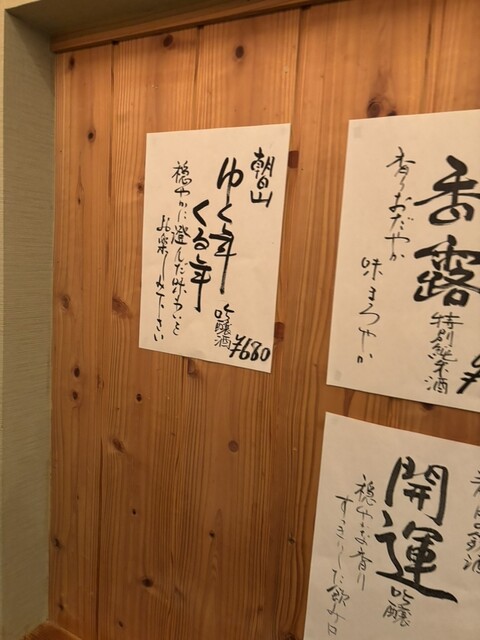 朝日山
ゆく年
くる年
吟醸酒
¥680
穏やかに澄んだ味わいを
お楽しみ下さい
香露
特別純米酒
¥
香りおだやか
味まろやか
開運
吟醸
穏やかな香り
すっきりした飲み口